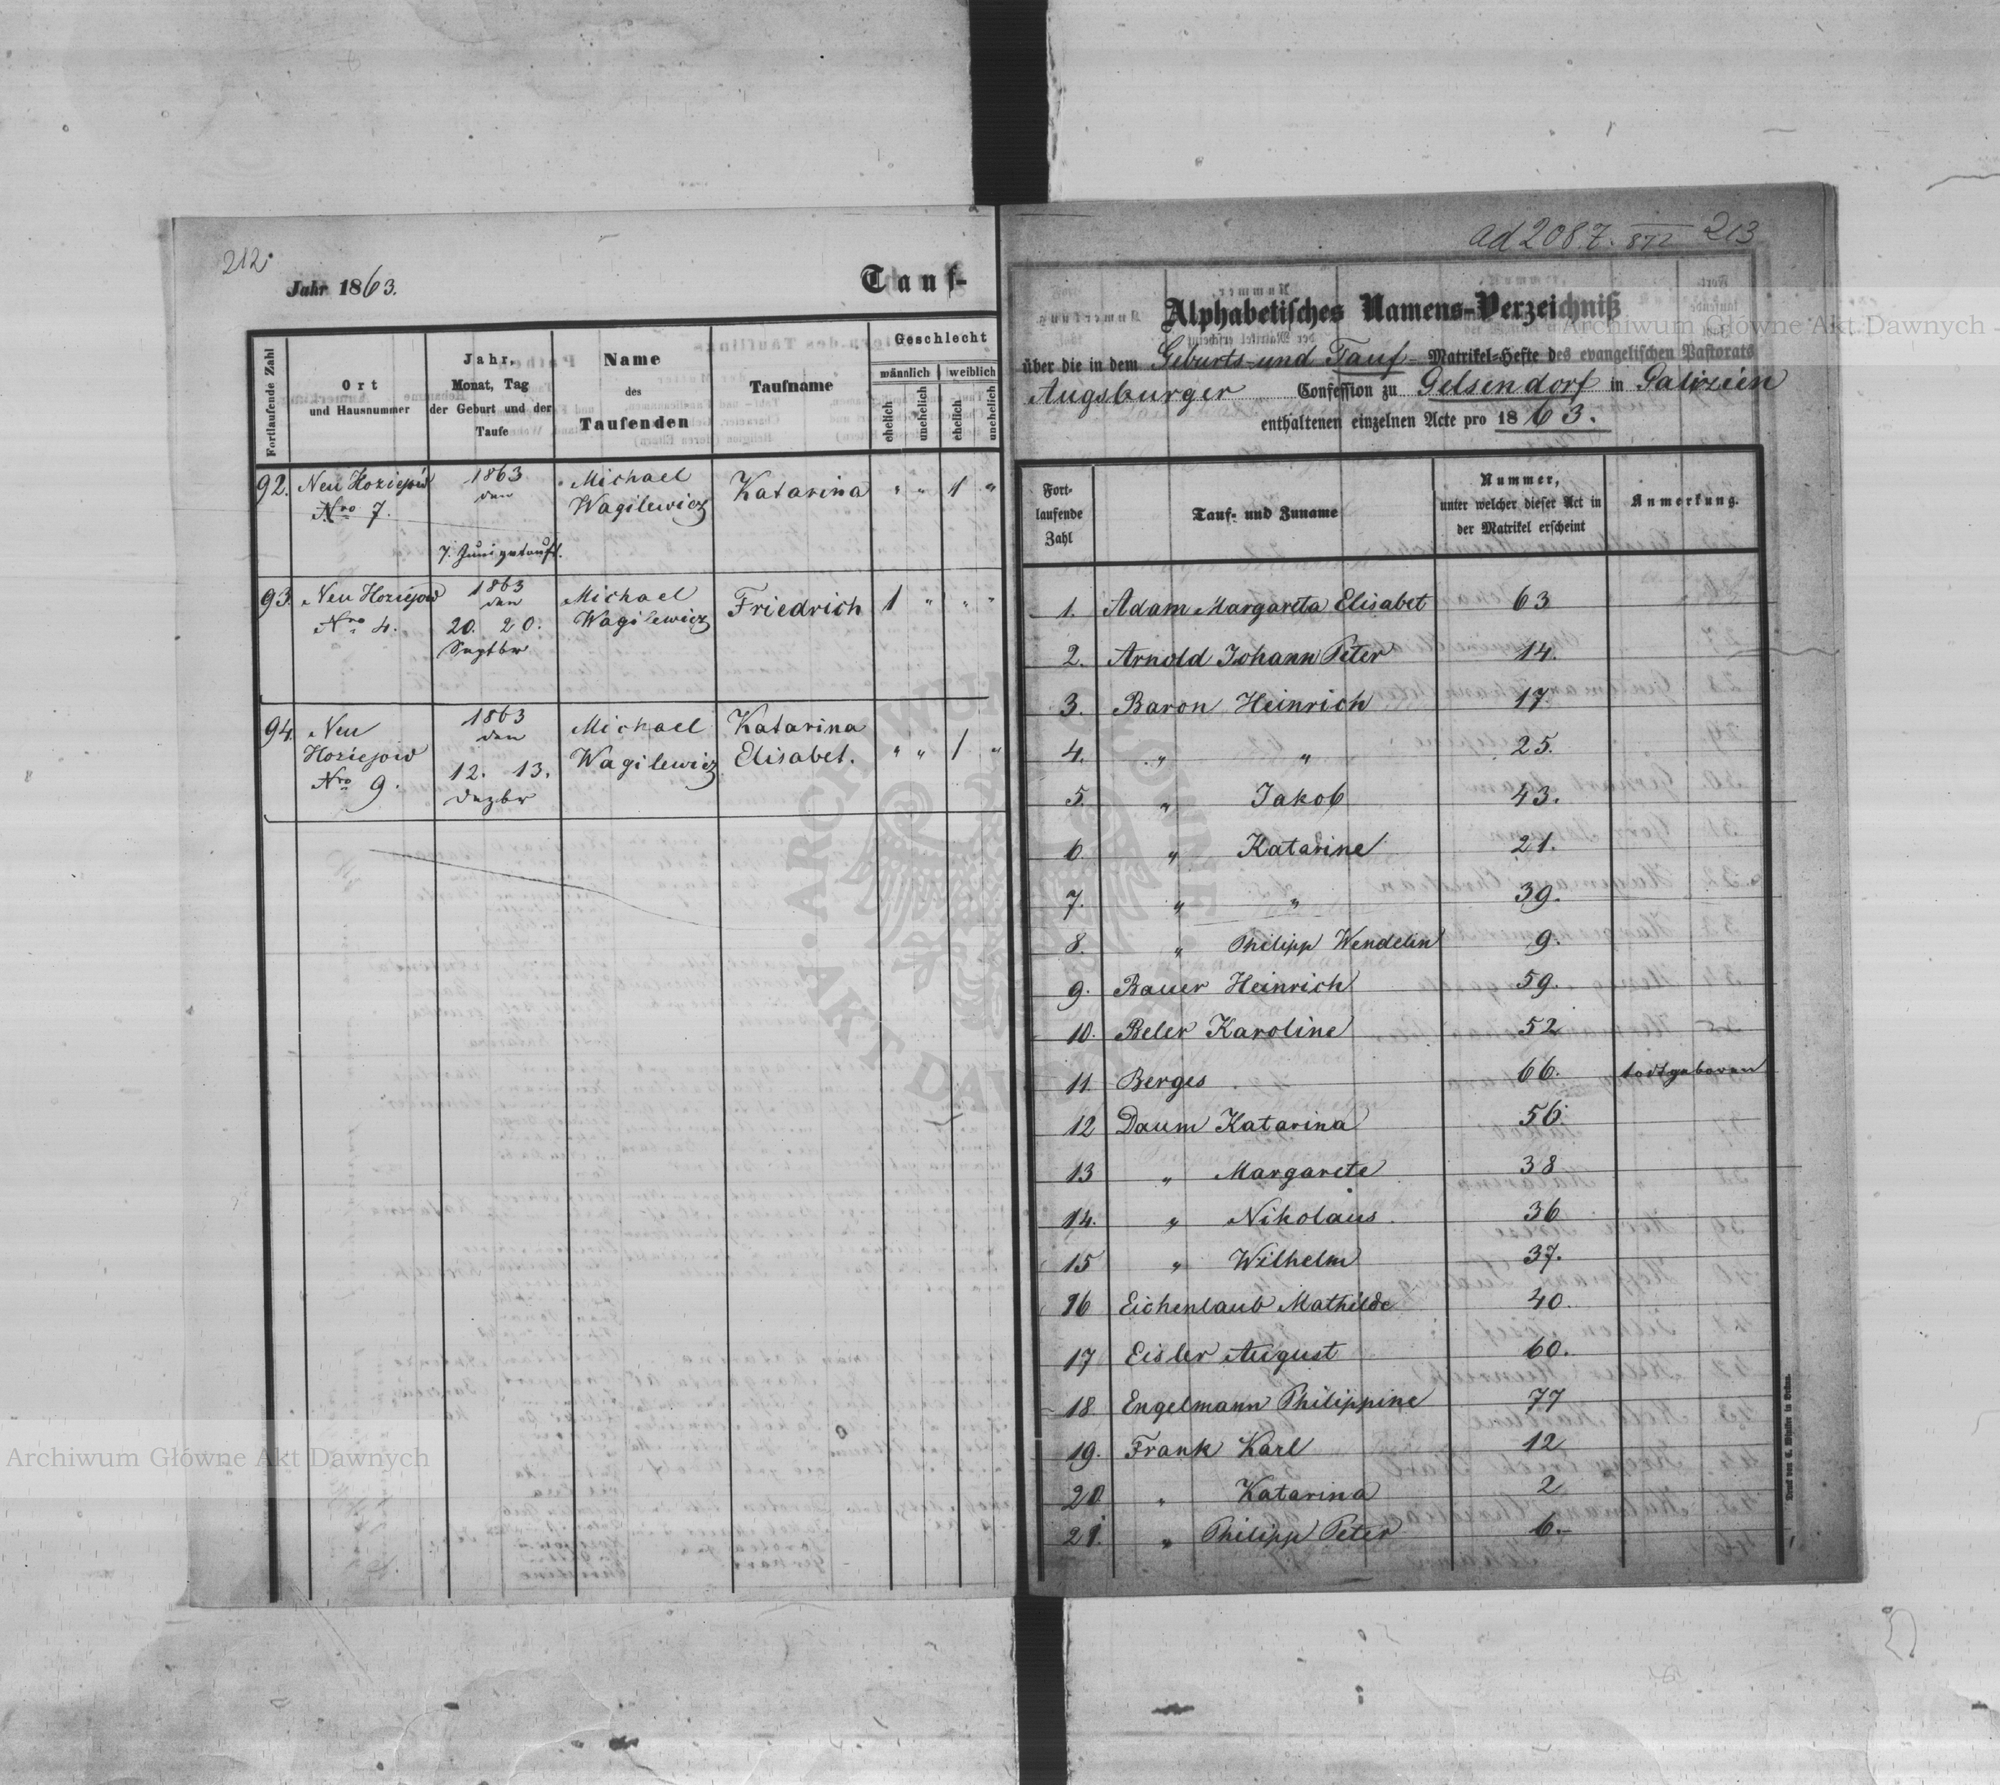 212.
Jahr 1863.
Tauf-
Fortlaufende Zahl
Ort
und Hausnummer
Jahr,
Monat, Tag
der Geburt und der
Taufe
Name
des
Taufenden
Taufname
Geschlecht
männlich
weiblich
ehelich
unehelich
ehelich
unehelich
92. Neu Hoziejów 1863 Michael Katarina " " 1 "
Nro 7. den Wagilewicz
7. Juni getauft.
93. Neu Hoziejow 1863 Michael Friedrich 1 " " "
Nro 4. den Wagilewicz
20. 20.
Septbr
94. Neu 1863 Michael Katarina
Hoziejow den Wagilewicz Elisabet. " " 1 "
Nro 9. 12. 13.
Dezbr
ad 2087. 872 213
Alphabetisches Namens-Verzeichniß
über die in dem Geburts- und Tauf- Matrikel-Hefte des evangelischen Pastorats
Augsburger Confession zu Gelsendorf in Galizien
enthaltenen einzelnen Acte pro 1863.
Fort-
laufende
Zahl
Tauf- und Zuname
Nummer,
unter welcher dieser Act in
der Matrikel erscheint
Anmerkung.
1. Adam Margareta Elisabet 63
2. Arnold Johann Peter 14.
3. Baron Heinrich 17.
4. " " 25.
5. " Jakob 43.
6. " Katarine 21.
7. " " 39.
8. " Philipp Wendelin 9.
9. Bauer Heinrich 59.
10. Beler Karoline 52
11. Berges 66. todtgeboren
12 Daum Katarina 56.
13 " Margarete 38
14. " Nikolaus 36
15 " Wilhelm 37.
16 Eichenlaub Mathilde 40.
17 Eisler August 60.
18. Engelmann Philippine 77
19. Frank Karl 12
20 " Katarina 2
21. " Philipp Peter 6.
Archiwum Główne Akt Dawnych
Archiwum Główne Akt Dawnych -
ARCHIWUM GŁÓWNE AKT DAWNYCH